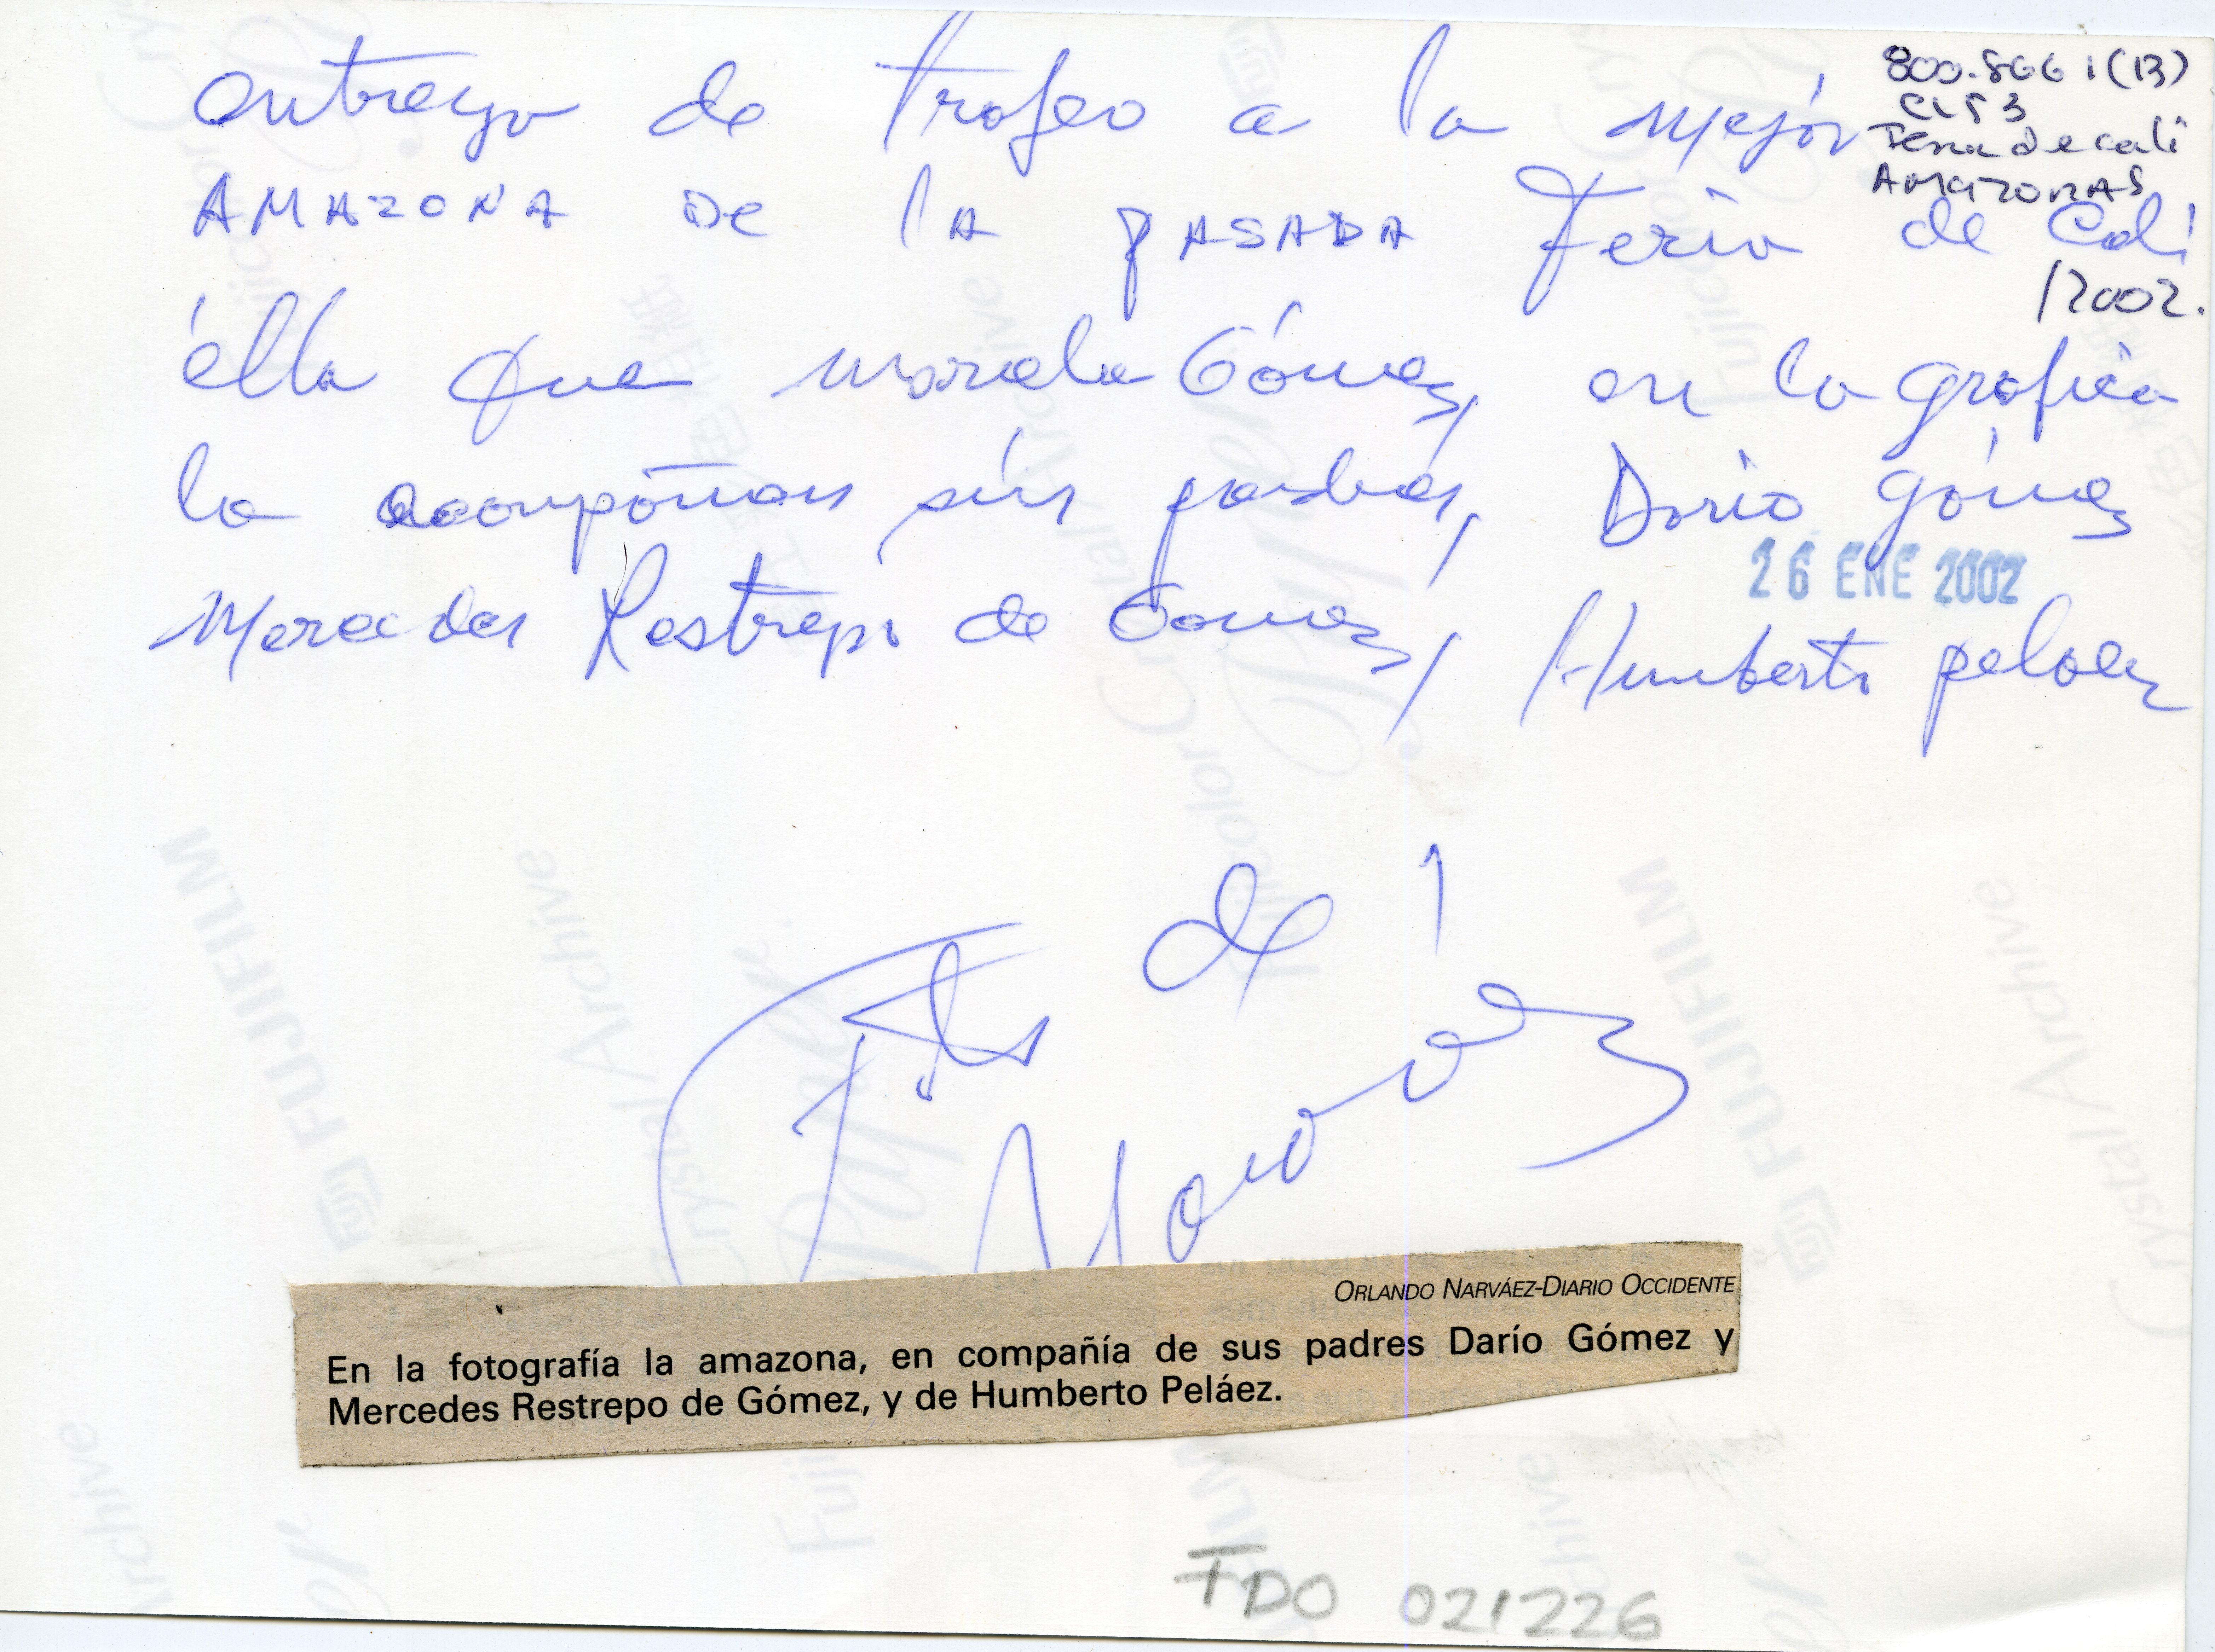 entrega de trofeo a la mejor
AMAZONA De lA pASADA Feria de Cali
élla que Gómez, en la grafica
la acompañan sus padres, Dario Gómez
Mercedes Restrepo de Gomez, Humberto pelaez
800.8661(13)
Feria de cali
AMAZONAS
/2002.
26 ENE 2002
de
Narváez
ORLANDO NARVÁEZ-DIARIO OCCIDENTE
En la fotografía la amazona, en compañía de sus padres Darío Gómez y
Mercedes Restrepo de Gómez, y de Humberto Peláez.
FDO 021226
FUJIFILM
Crystal Archive
Paper
Fujicolor Crystal Archive
FUJIFILM
Crystal Archive